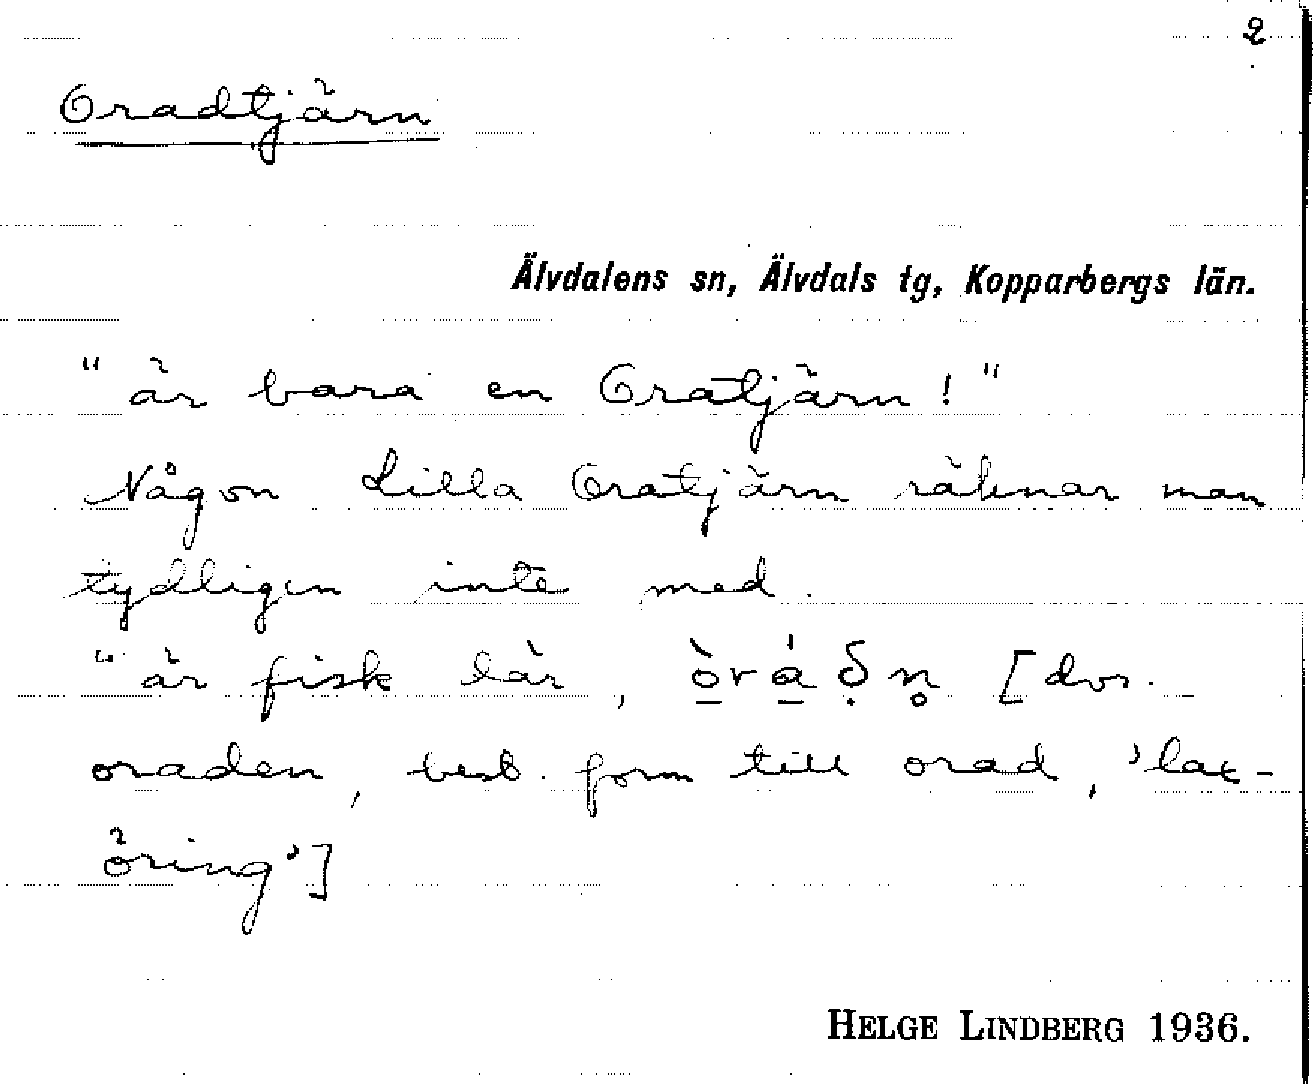 2
Oradtjärn
Älvdalens sn, Älvdals tg, Kopparbergs län.
"är bara en Oratjärn!"
Någon Lilla Oratjärn räknar man
tydligen inte med.
"är fisk där, ò̱rá̱δ̣n̥ [dvs.
oraden, best. form till orad, 'lax-
öring']
HELGE LINDBERG 1936.